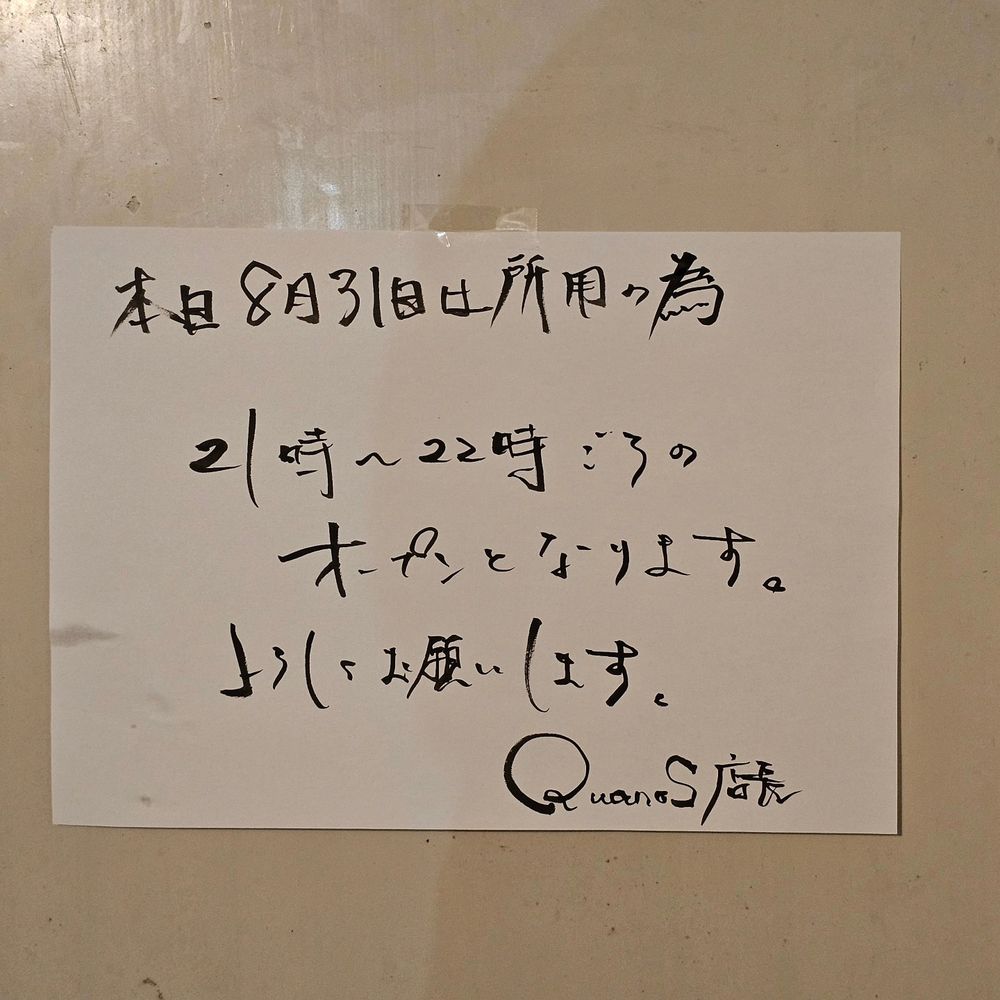 本日8月31日は所用の為
21時〜22時ごろの
オープンとなります。
よろしくお願いします。
QuanoS店長